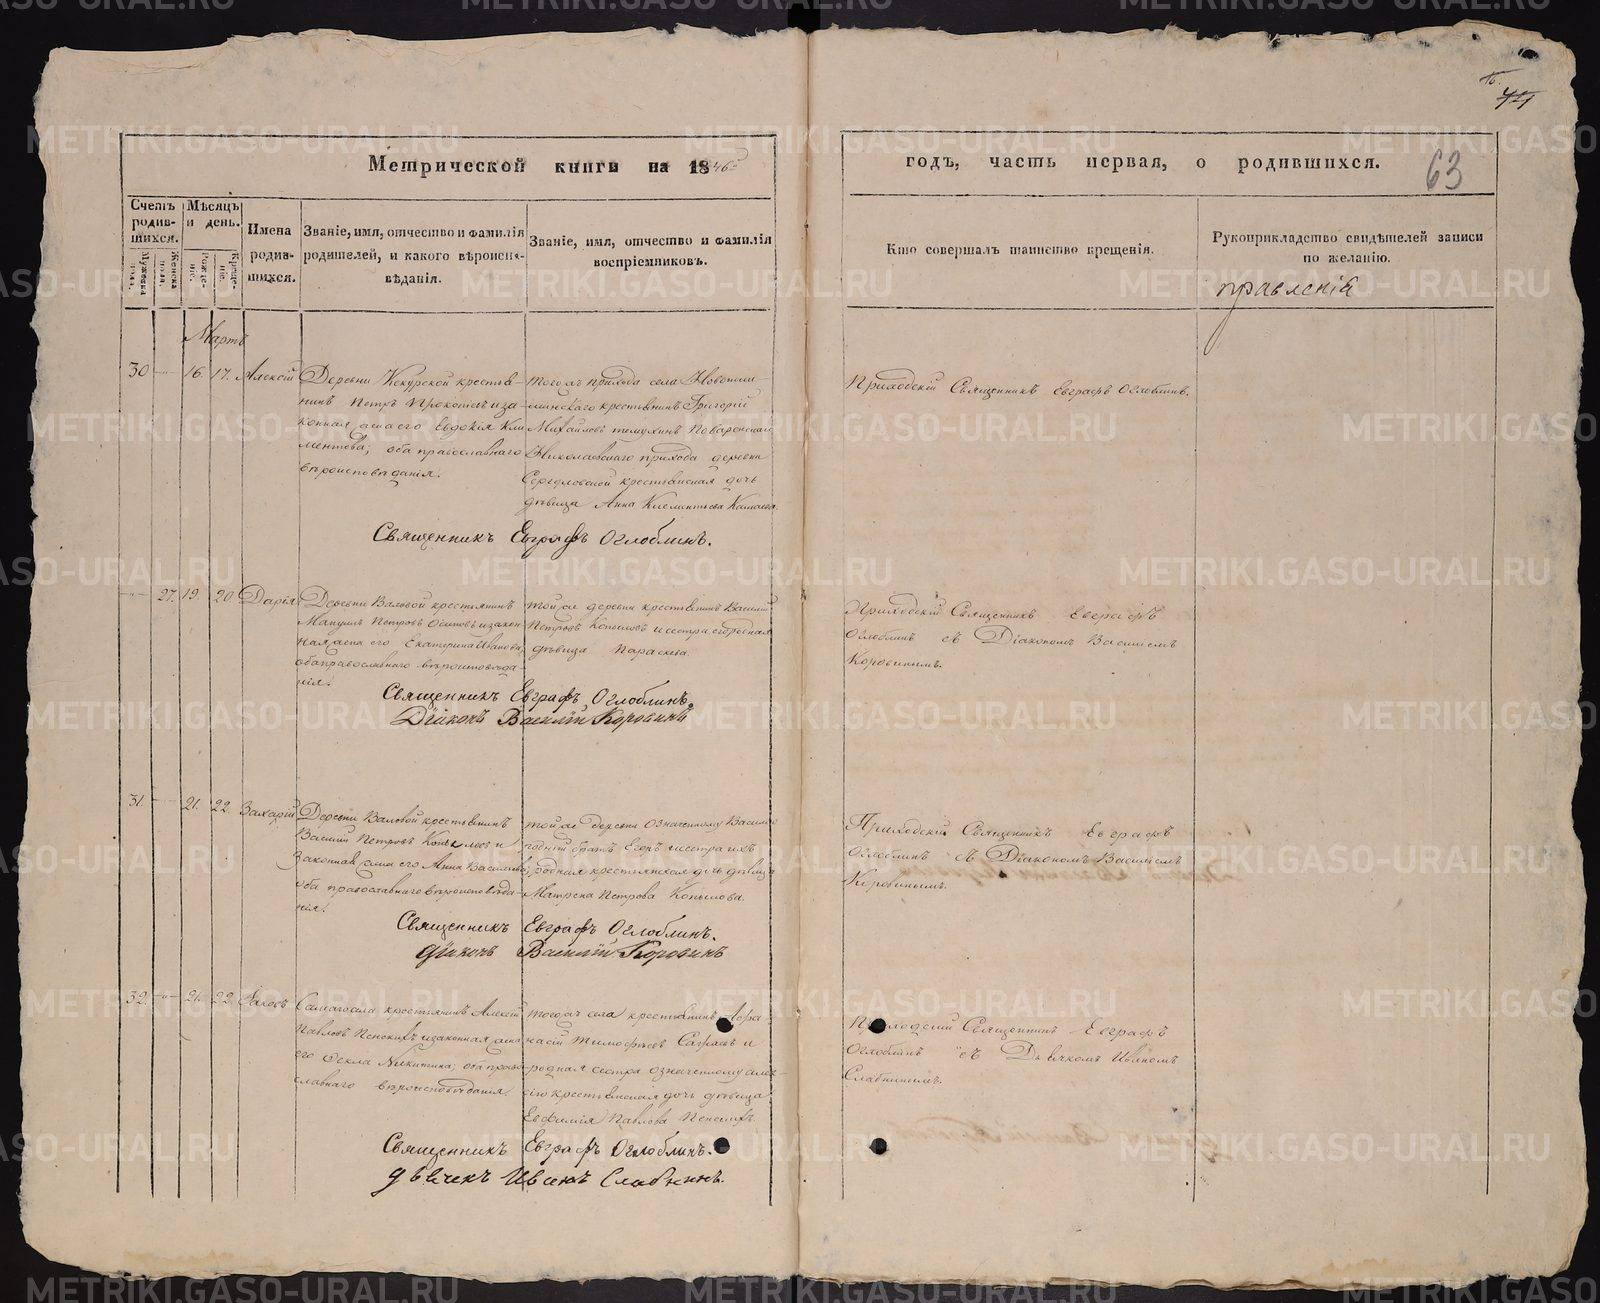 44
63
Метрической книги на 1846й
годъ, часть первая, о родившихся.
Счетъ родив-шихся.
Мужеска пола.
Женска пола
Мѣсяцъ и день.
Рожде-ніе.
Креще-ніе.
Имена родив-шихся.
Званіе, имя, отчество и фамилія родителей, и какого вѣроиспо-вѣданія.
Званіе, имя, отчество и фамилія воспріемниковъ.
Кто совершалъ таинство крещенія.
Рукоприкладство свидѣтелей записи по желанію.
правленій
Мартъ
30 16. 17. Алексій
Деревни Кекурской крестья-
нинъ Петръ Прокопьевъ и за-
конная жена его Евдокія Кли
ментова, оба православнаго
вѣроисповѣданія.
тогожъ прихода села
крестьянинъ Григорій
Михайловъ
Николаевскаго прихода деревни
крестьянская дочь
дѣвица Анна Климентьева
Приходскій Священникъ Евграфъ Оглоблинъ.
Священникъ Евграфъ Оглоблинъ.
27. 19. 20 Дарія
Деревни Валовой крестьянинъ
Петровъ Осиповъ и закон-
ная жена его Екатерина Иванова,
оба православнаго вѣроисповѣда-
нія.
той же деревни крестьянинъ Василій
Петровъ Копыловъ и сестра его родная
дѣвица Параскева.
Приходскій Священникъ Евграфъ
Оглоблинъ съ Діакономъ Василіемъ
Коровинымъ.
Священникъ Евграфъ Оглоблинъ.
Діаконъ Василій Коровинъ
31. 21. 22. Захарій
Деревни Валовой крестьянинъ
Василій Петровъ Копыловъ и
Законная жена его Анна Васильева,
оба православнаго вѣроисповѣда-
нія.
той же деревни означенному Василію
родный братъ Егоръ и сестра ихъ
родная крестьянская дочь дѣвица
Матрена Петрова Копылова.
Приходскій Священникъ Евграфъ
Оглоблинъ съ Діакономъ Василіемъ
Коровинымъ.
Священникъ Евграфъ Оглоблинъ.
діаконъ Василій Коровинъ
32. 21. 22. Іаковъ
Самаго села крестьянинъ Алексій
Павловъ Пенскихъ и законная жена
его Фекла Никитина, оба право-
славнаго вѣроисповѣданія.
тогожъ села крестьянинъ Афа-
насій Тимофѣевъ и
родная сестра означенному Алек-
сію крестьянская дочь дѣвица
Евфимія Павлова Пенскихъ.
Приходскій Священникъ Евграфъ
Оглоблинъ съ Дьячкомъ Иваномъ
Слабнинымъ.
Священникъ Евграфъ Оглоблинъ.
дьячекъ Иванъ Слабнинъ.
METRIKI.GASO-URAL.RU